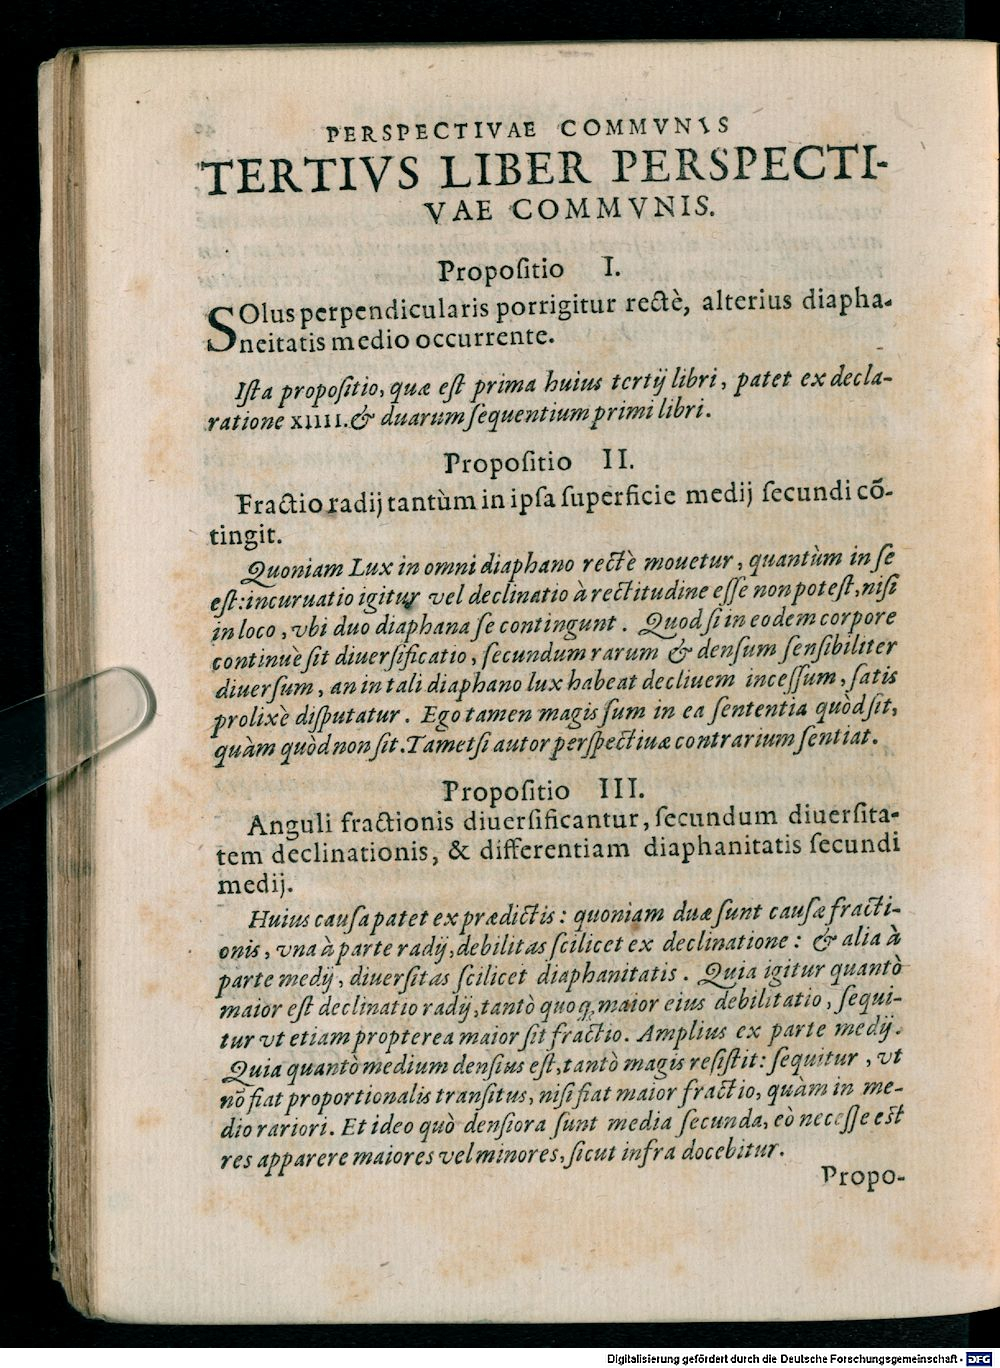 PERSPECTIVAE COMMVNIS
TERTIVS LIBER PERSPECTI-
VAE COMMVNIS.
Propoſitio I.
SOlus perpendicularis porrigitur rectè, alterius diapha-
neitatis medio occurrente.
Iſta propoſitio, quæ eſt prima huius tertij libri, patet ex decla-
ratione XIIII. & duarum ſequentium primi libri.
Propoſitio II.
Fractio radij tantùm in ipſa ſuperficie medij ſecundi cō-
tingit.
Quoniam Lux in omni diaphano rectè mouetur, quantùm in ſe
eſt: incuruatio igitur vel declinatio à rectitudine eſſe non poteſt, niſi
in loco, vbi duo diaphana ſe contingunt. Quod ſi in eodem corpore
continuè ſit diuerſificatio, ſecundum rarum & denſum ſenſibiliter
diuerſum, an in tali diaphano lux habeat decliuem inceſſum, ſatis
prolixè diſputatur. Ego tamen magis ſum in ea ſententia quòd ſit,
quàm quòd non ſit. Tametſi autor perſpectiuæ contrarium ſentiat.
Propoſitio III.
Anguli fractionis diuerſificantur, ſecundum diuerſita-
tem declinationis, & differentiam diaphanitatis ſecundi
medij.
Huius cauſa patet ex prædictis: quoniam duæ ſunt cauſæ fracti-
onis, vna à parte radij, debilitas ſcilicet ex declinatione: & alia à
parte medij, diuerſitas ſcilicet diaphanitatis. Quia igitur quantò
maior eſt declinatio radij, tantò quoq; maior eius debilitatio, ſequi-
tur vt etiam propterea maior ſit fractio. Amplius ex parte medij.
Quia quantò medium denſius eſt, tantò magis reſiſtit: ſequitur, vt
nō fiat proportionalis tranſitus, niſi fiat maior fractio, quàm in me-
dio rariori. Et ideo quò denſiora ſunt media ſecunda, eò neceſſe eſt
res apparere maiores vel minores, ſicut infra docebitur.
Propo-
Digitalisierung gefördert durch die Deutsche Forschungsgemeinschaft - DFG